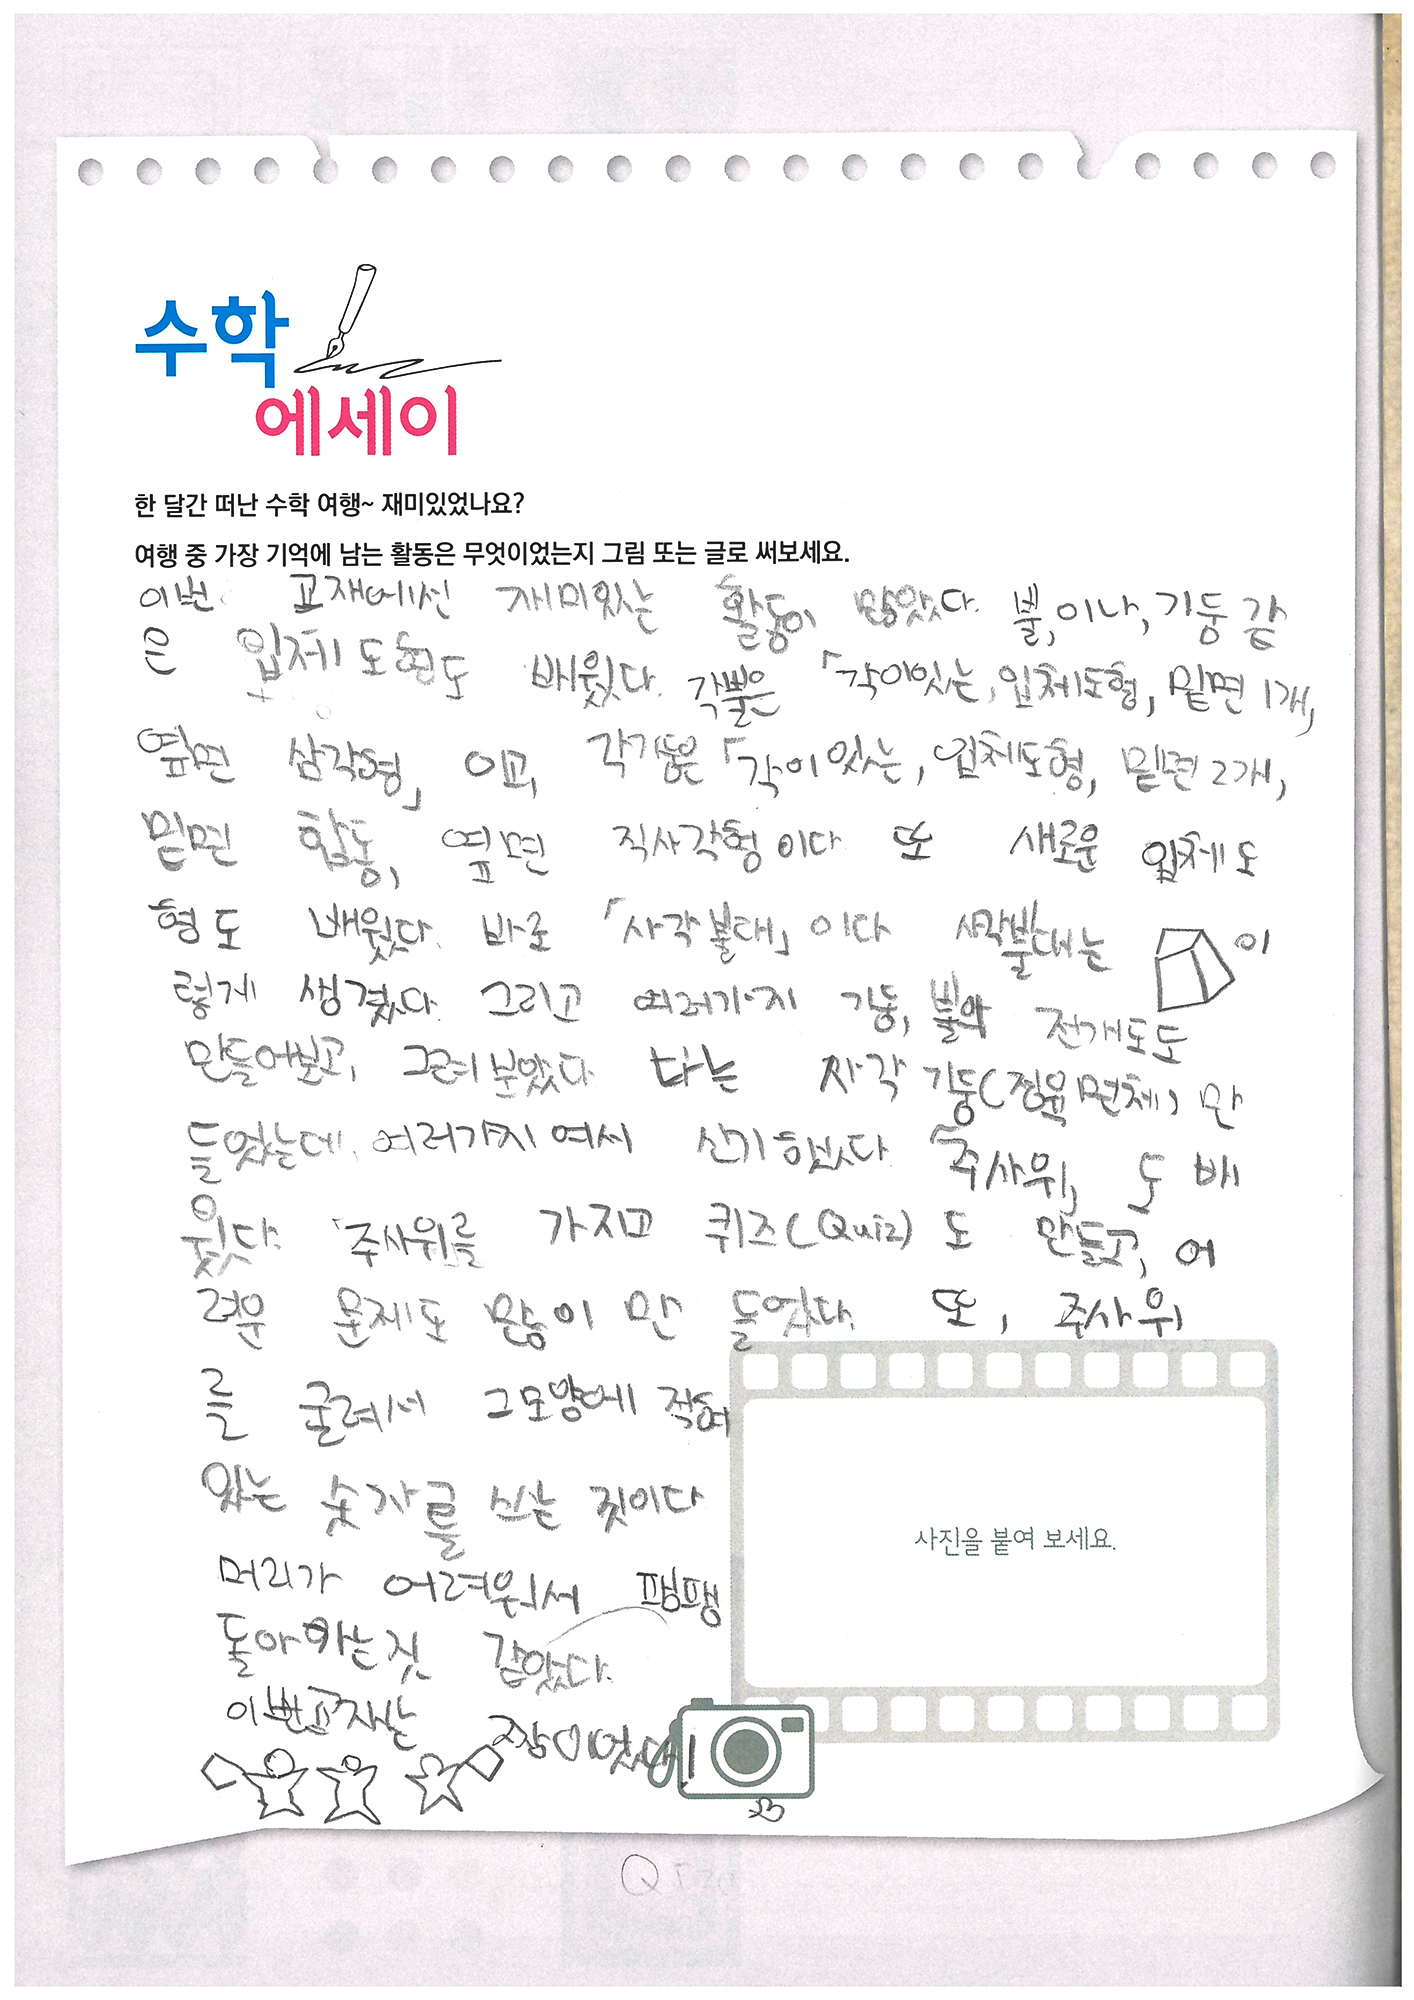 수학
에세이
한 달간 떠난 수학 여행~ 재미있었나요?
여행 중 가장 기억에 남는 활동은 무엇이었는지 그림 또는 글로 써보세요.
이번 교재에선 재미있는 활동이 많았다. 뿔,이나, 기둥 같
은 입체 도형도 배웠다. 각뿔은 「각이있는, 입체도형, 밑면 1개,
옆면 삼각형」 이고, 각기둥은 「각이 있는, 입체도형, 밑면 2개,
밑면 합동, 옆면 직사각형이다 또 새로운 입체도
형도 배웠다. 바로 「사각뿔대」 이다 사각뿔대는 이
렇게 생겼다. 그리고 여러가지 기둥, 뿔의 전개도도
만들어보고, 그려보았다 나는 사각 기둥(정육면체) 만
들었는데, 여러가지여서 신기했다. 「주사위」 도 배
웠다. 주사위를 가지고 퀴즈(Quiz)도 만들고, 어
려운 문제도 많이 만들었다. 또, 주사위
를 굴려서 그모양에 적혀
있는 숫자를 쓰는 것이다
머리가 어려워서 팽팽
돌아가는것 같았다.
이번교재는 짱이었다!
사진을 붙여 보세요.